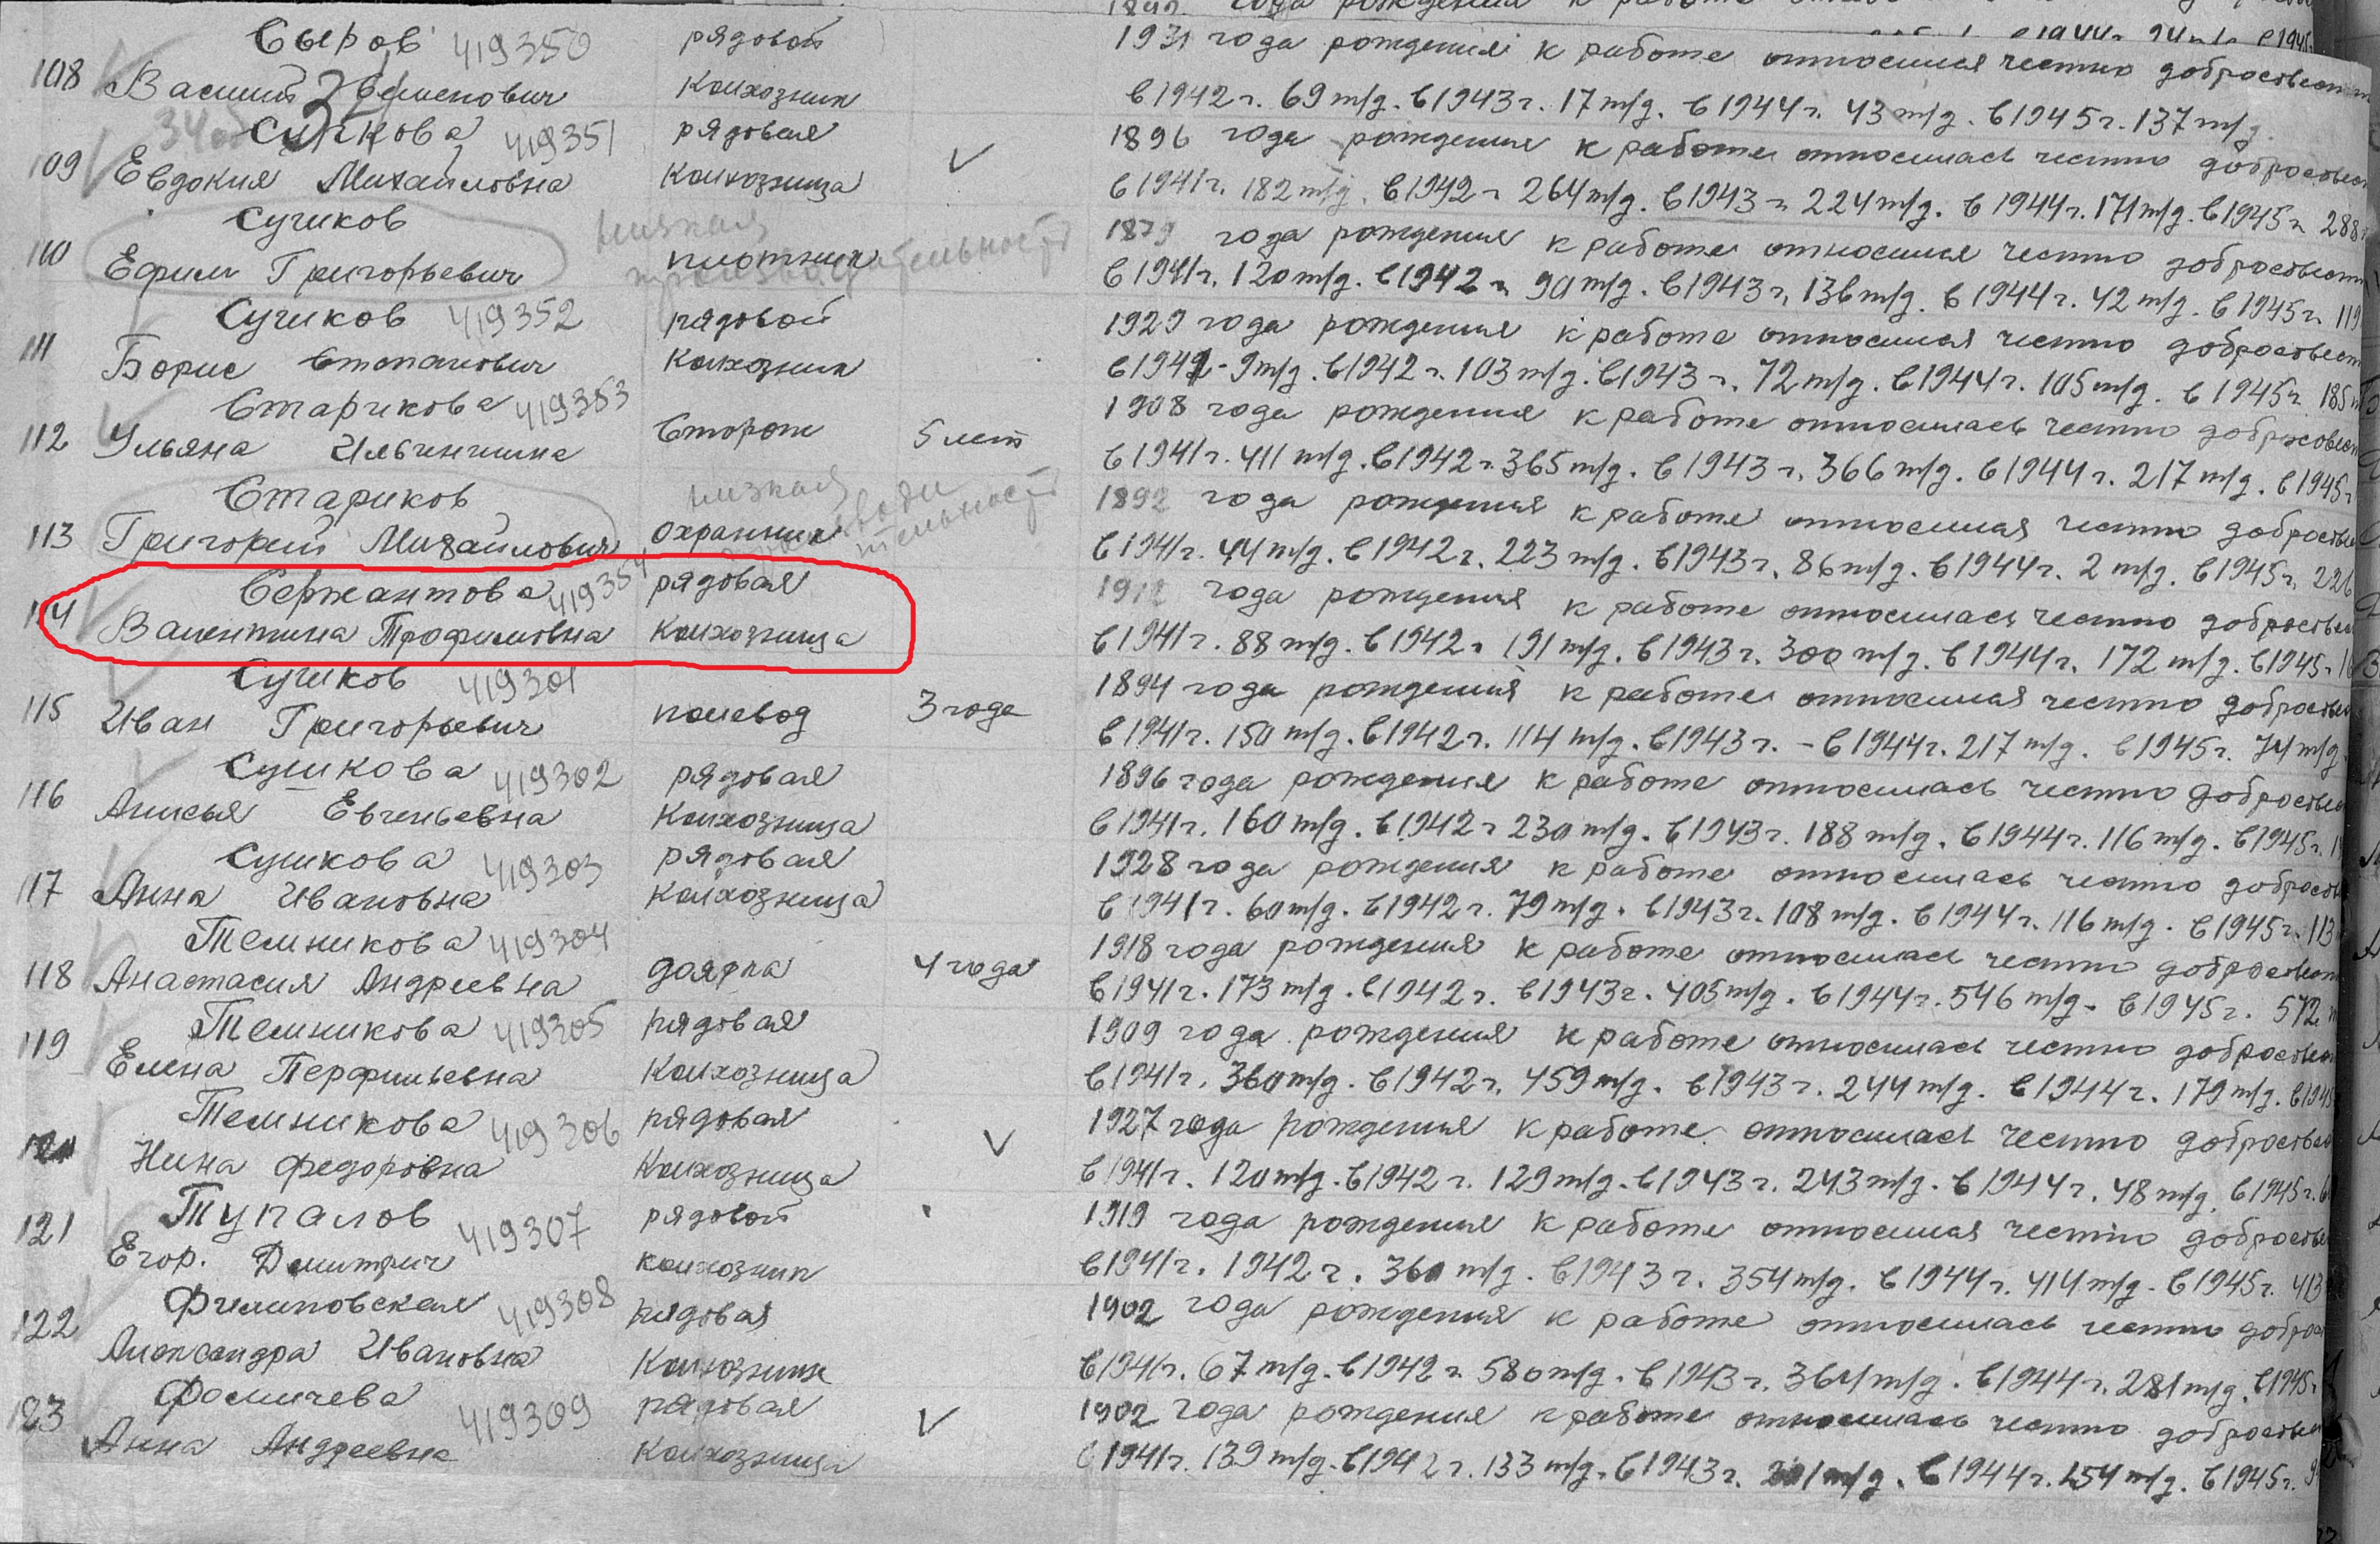 Сыров 419350 рядовой 1931 года рождения к работе относился честно добросовестн
108 Василий Семенович колхозник в 1942 г. 69 т/д. в 1943 г. 17 т/д. в 1944 г. 43 т/д. в 1945 г. 137 т/д.
Сучкова 419351 рядовая 1896 года рождения к работе относилась честно добросовес
109 Евдокия Михайловна колхозница в 1941 г. 182 т/д. в 1942 г. 264 т/д. в 1943 г. 224 т/д. в 1944 г. 171 т/д. в 1945 г. 288
Сучков низкая 1879 года рождения к работе относился честно добросовестн
110 Ефим Григорьевич плотник производительность в 1941 г. 120 т/д. в 1942 г. 90 т/д. в 1943 г. 136 т/д. в 1944 г. 42 т/д. в 1945 г. 119
Сучков 419352 рядовой 1929 года рождения к работе относился честно добросовест
111 Борис Степанович колхозник в 1941 - 9 т/д. в 1942 г. 103 т/д. в 1943 г. 72 т/д. в 1944 г. 105 т/д. в 1945 г. 185
Старикова 419353 1908 года рождения к работе относилась честно добросовест
112 Ульяна Ильинична Сторож 5 лет в 1941 г. 411 т/д. в 1942 г. 365 т/д. в 1943 г. 366 т/д. в 1944 г. 217 т/д. в 1945 г.
Стариков низкая 1892 года рождения к работе относился честно добросовес
113 Григорий Михайлович охранник производительность в 1941 г. 44 т/д. в 1942 г. 223 т/д. в 1943 г. 86 т/д. в 1944 г. 2 т/д. в 1945 г. 226
Сержантова 419354 рядовая 1912 года рождения к работе относилась честно добросовес
114 Валентина Трофимовна колхозница в 1941 г. 88 т/д. в 1942 г. 191 т/д. в 1943 г. 300 т/д. в 1944 г. 172 т/д. в 1945 г.
Сучков 419301 1894 года рождения к работе относился честно добросовес
115 Иван Григорьевич полевод 3 года в 1941 г. 150 т/д. в 1942 г. 114 т/д. в 1943 г. - в 1944 г. 217 т/д. в 1945 г. 74 т/д
Сушкова 419302 рядовая 1896 года рождения к работе относилась честно добросовес
116 Анисья Евгеньевна колхозница в 1941 г. 160 т/д. в 1942 г. 230 т/д. в 1943 г. 188 т/д. в 1944 г. 116 т/д. в 1945 г.
Сушкова 419303 рядовая 1928 года рождения к работе относилась честно добросов
117 Анна Ивановна колхозница в 1941 г. 60 т/д. в 1942 г. 79 т/д. в 1943 г. 108 т/д. в 1944 г. 116 т/д. в 1945 г. 113
Темникова 419304 1918 года рождения к работе относилась честно добросовест
118 Анастасия Андреевна доярка 4 года в 1941 г. 173 т/д. в 1942 г. в 1943 г. 405 т/д. в 1944 г. 546 т/д. в 1945 г. 572
Темникова 419305 рядовая 1909 года рождения к работе относилась честно добросовес
119 Елена Перфильевна колхозница в 1941 г. 360 т/д. в 1942 г. 459 т/д. в 1943 г. 244 т/д. в 1944 г. 179 т/д. в 1945
Темникова 419306 рядовая 1927 года рождения к работе относилась честно добросовес
120 Нина Федоровна колхозница в 1941 г. 120 т/д. в 1942 г. 129 т/д. в 1943 г. 243 т/д. в 1944 г. 48 т/д. в 1945 г.
Тупалов 419307 рядовой 1919 года рождения к работе относился честно добросове
121 Егор. Дмитрич колхозник в 1941 г. 1942 г. 360 т/д. в 1943 г. 354 т/д. в 1944 г. 414 т/д. в 1945 г. 413
Филиповская 419308 рядовая 1902 года рождения к работе относилась честно доброс
122 Александра Ивановна колхозник в 1941 г. 67 т/д. в 1942 г. 580 т/д. в 1943 г. 364 т/д. в 1944 г. 281 т/д. в 1945 г.
Фомичева 419309 рядовая 1902 года рождения к работе относилась честно добросовес
123 Анна Андреевна колхозница в 1941 г. 139 т/д. в 1942 г. 133 т/д. в 1943 г. 201 т/д. в 1944 г. 154 т/д. в 1945 г.